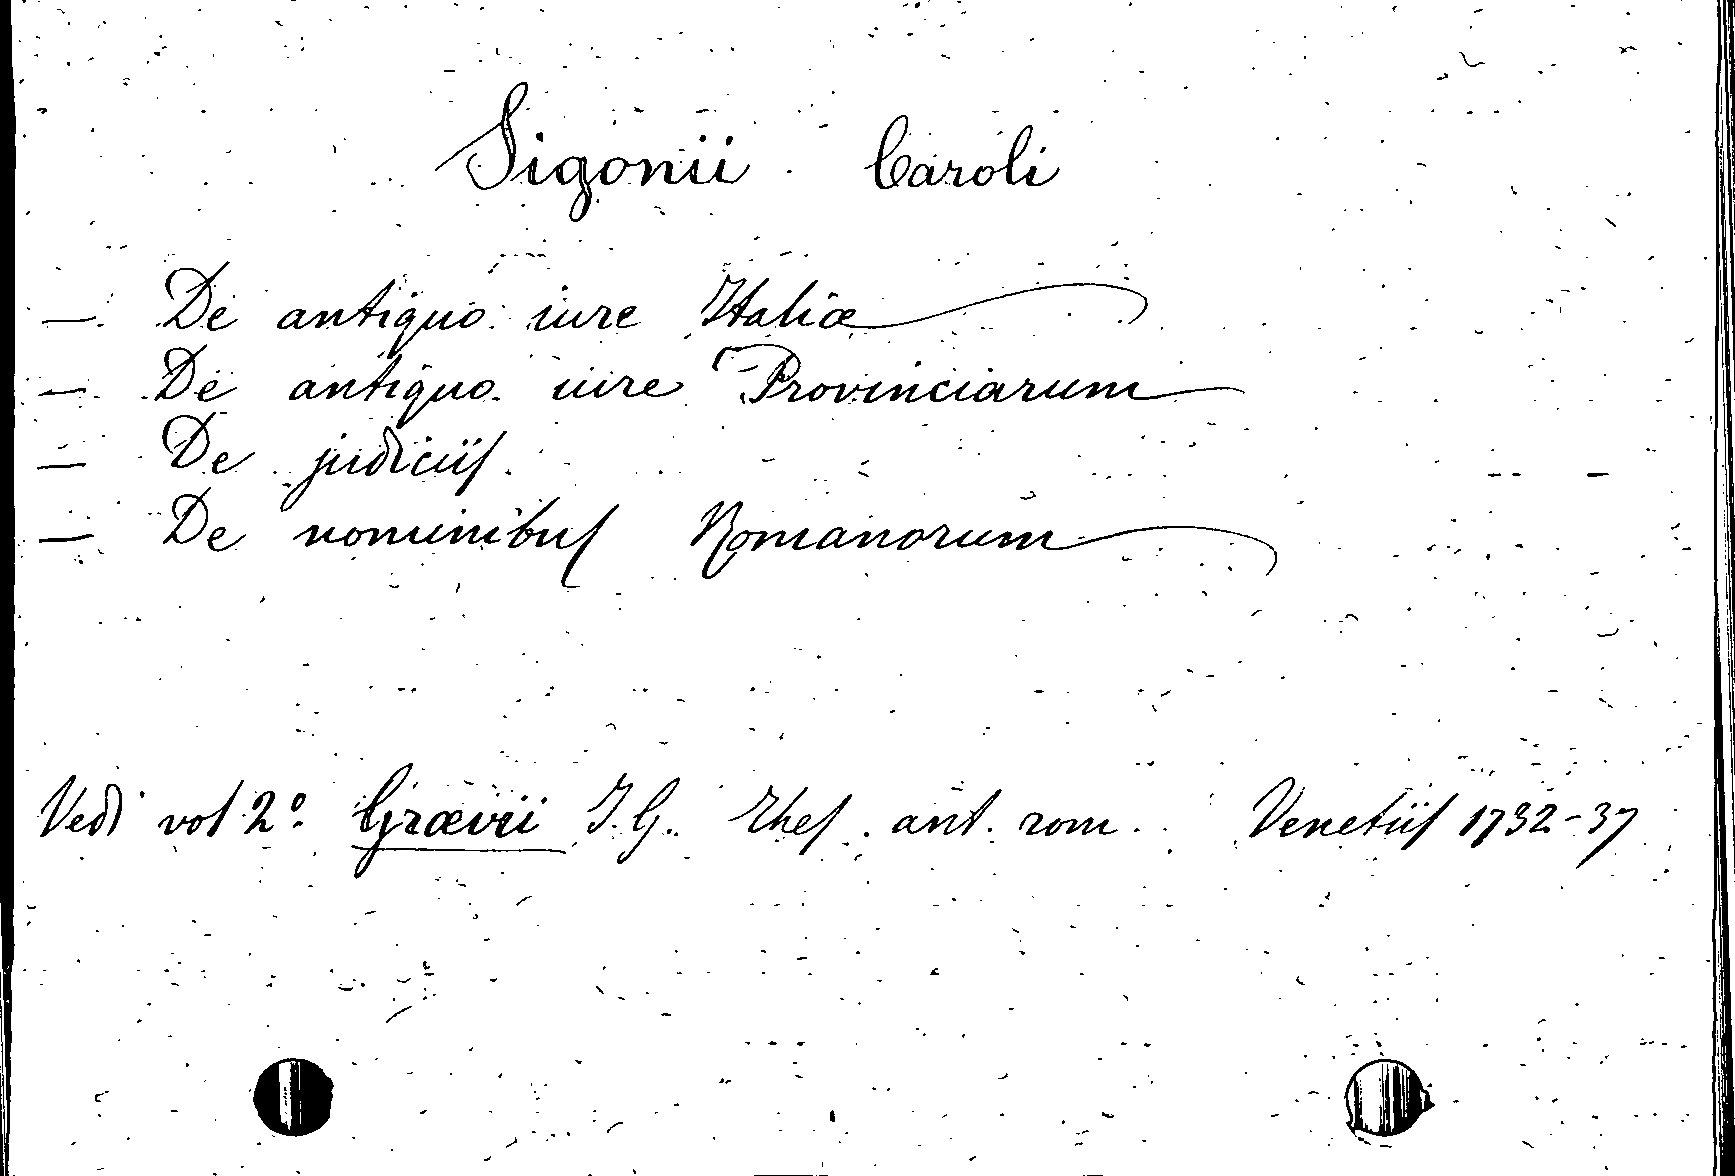 Sigonii Caroli
— De antiquo iure Italiæ
— De antiquo iure Provinciarum
— De judiciis.
— De nominibus Romanorum
Vedi vol 2º Grævii J. G. Thes. ant. rom. Venetiis 1732-37